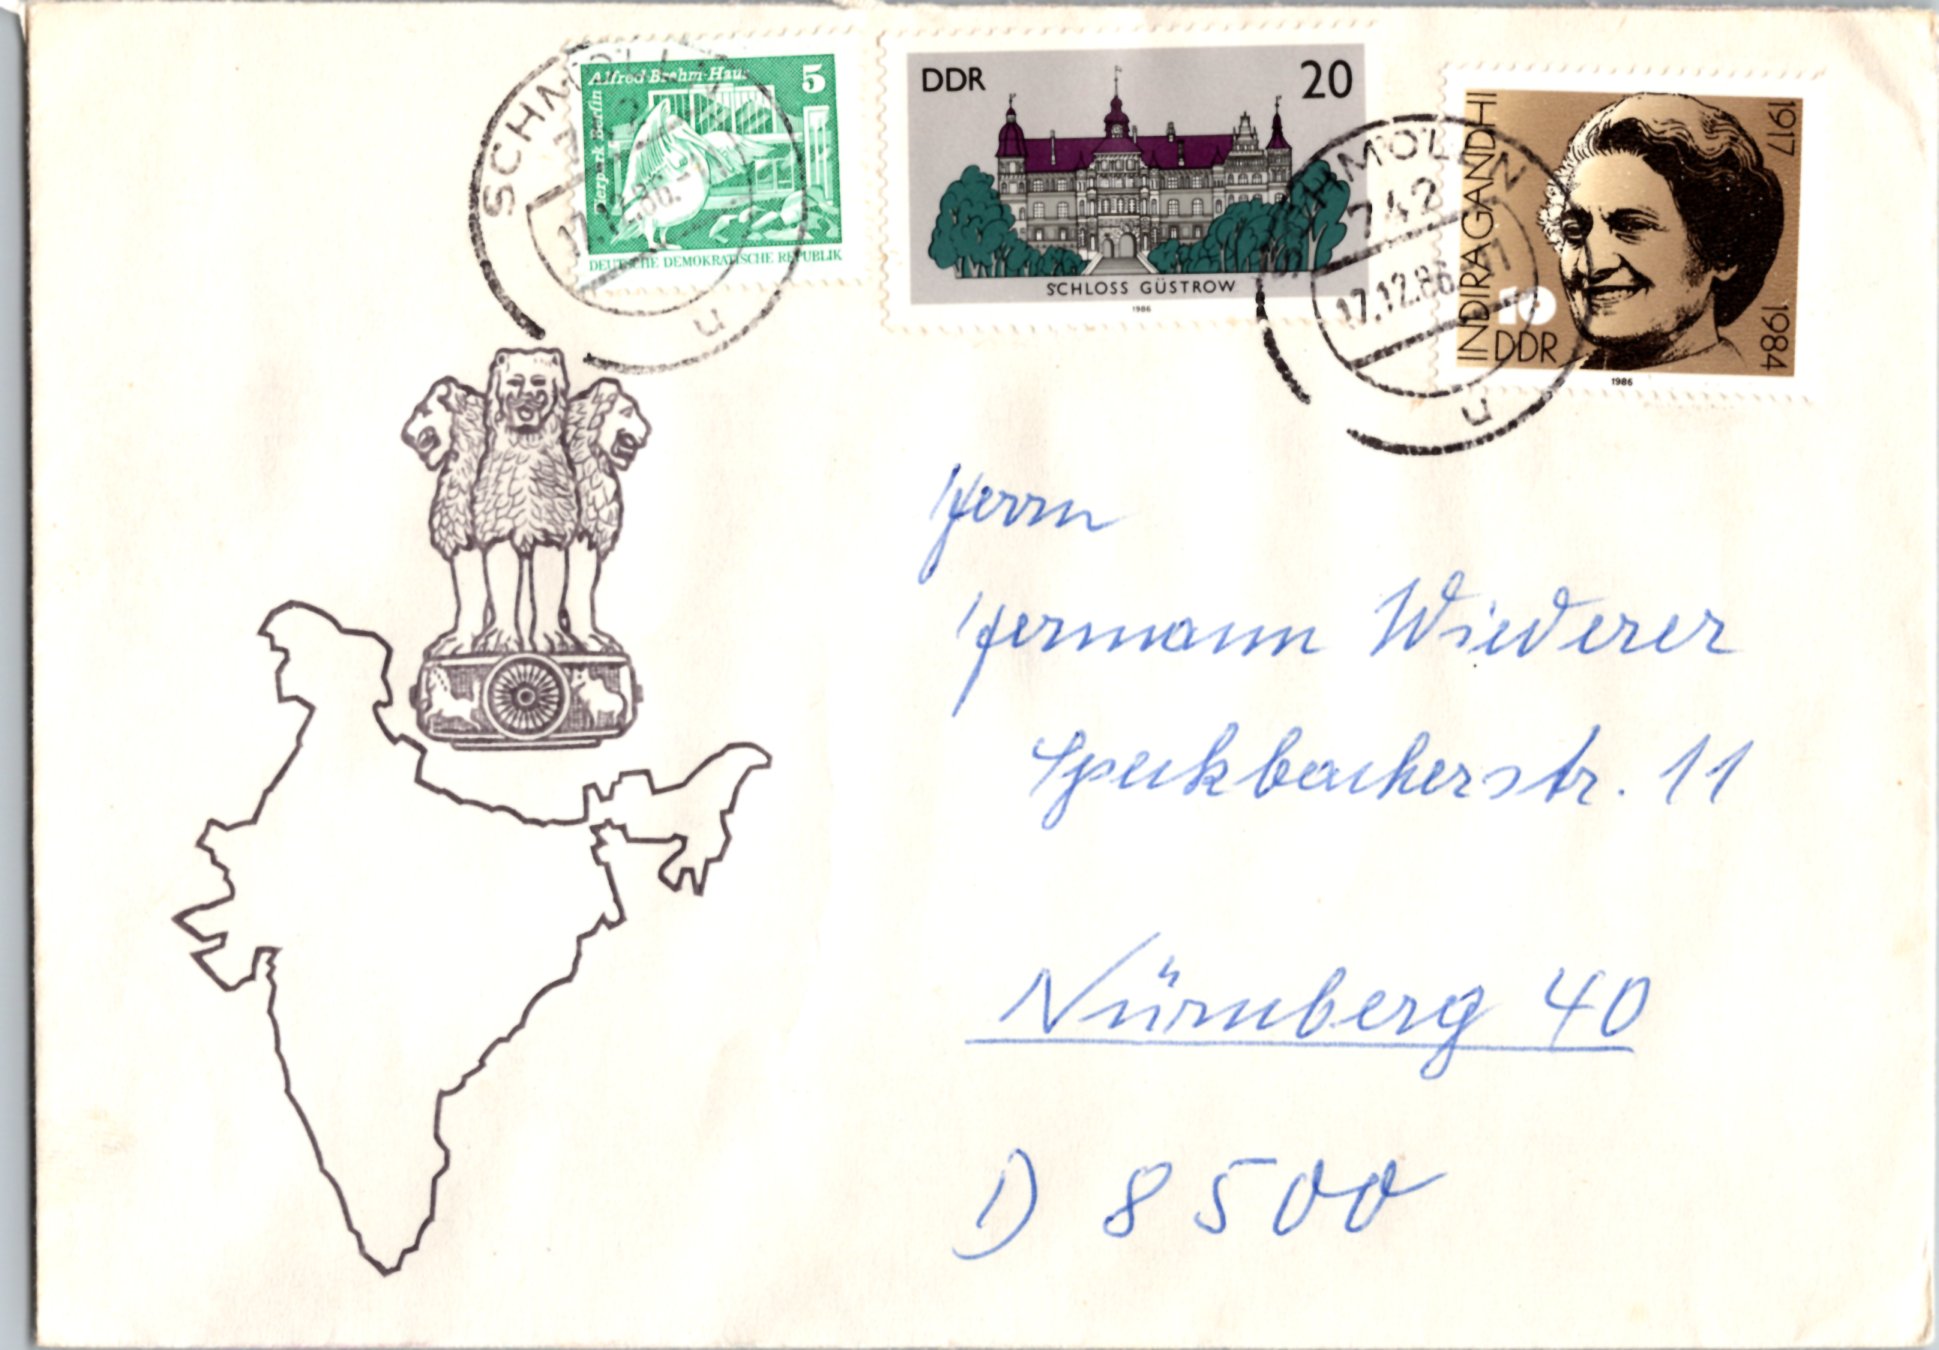 Alfred-Brehm-Haus
Tierpark Berlin
5
DEUTSCHE DEMOKRATISCHE REPUBLIK
DDR
20
SCHLOSS GÜSTROW
1986
INDIRA GANDHI
1917
1984
10
DDR
1986
SCHMÖLLN
742
17.12.86
u
u
Herrn
Hermann Wiederer
Speckbacherstr. 11
Nürnberg 40
D 8500